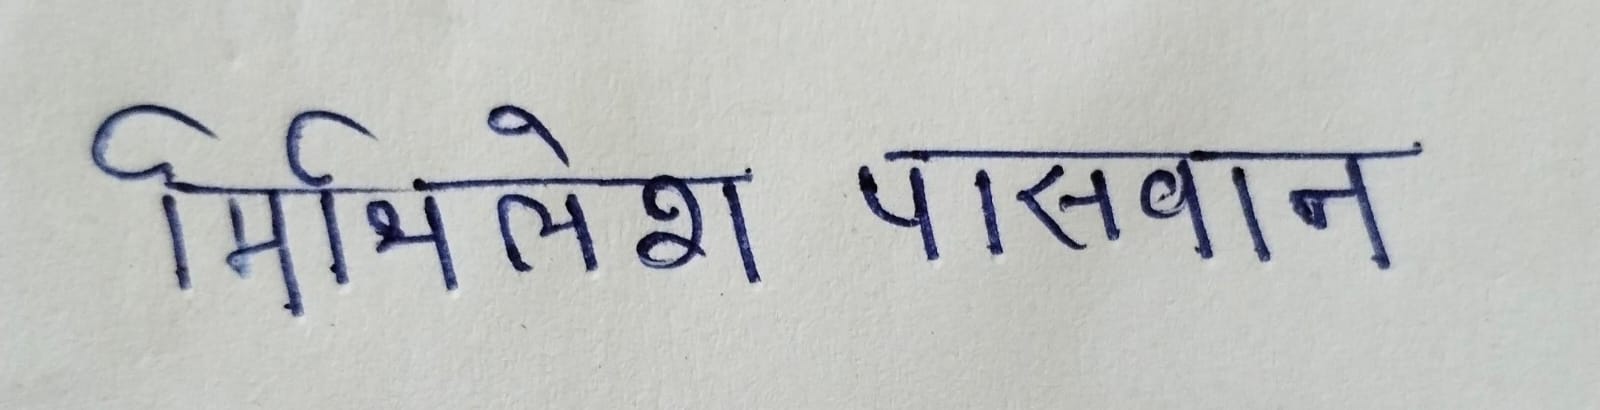 मिथिलेश पासवान